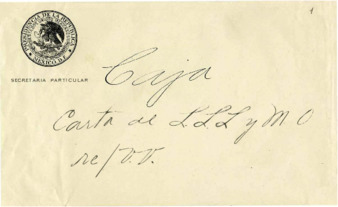 1
PRESIDENCIA DE LA REPUBLICA
MEXICO, D.F.
SECRETARIA PARTICULAR
Caja
Carta de LLL y M O
re/V.V.